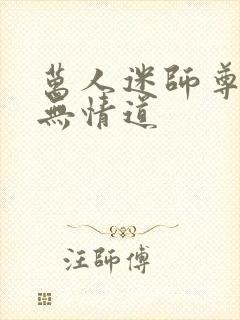 萬人迷師尊
無情道
汪師傅